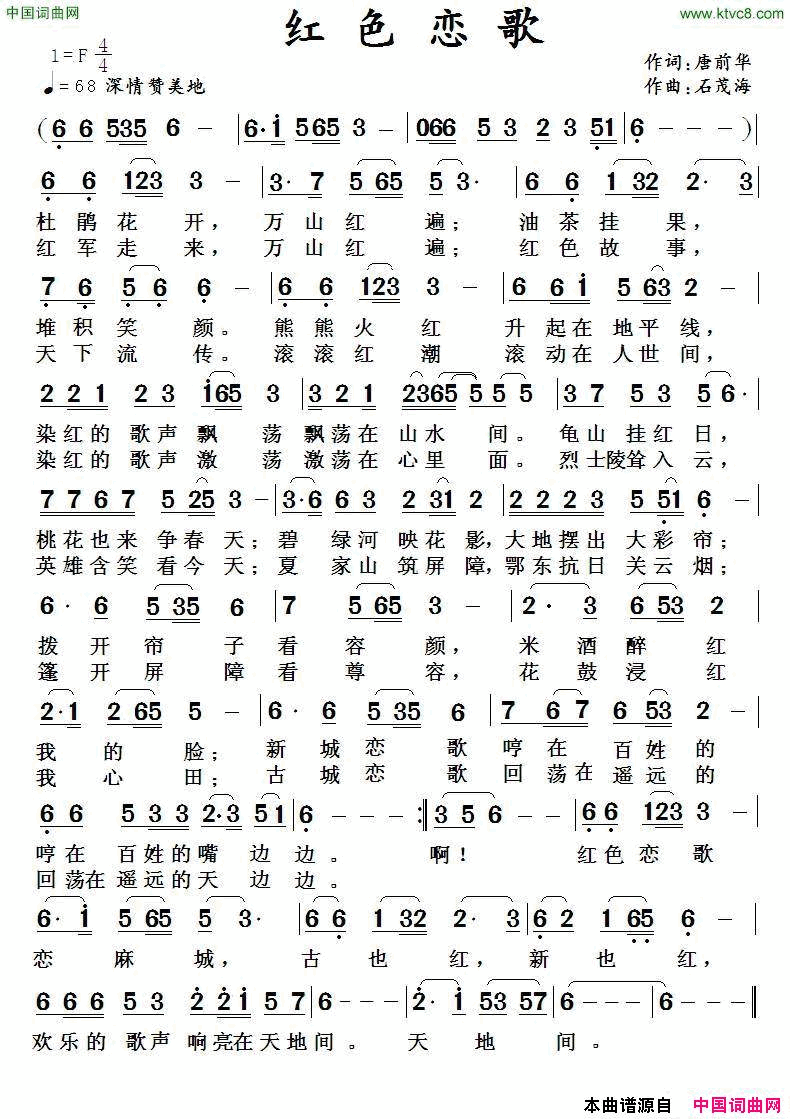 中国词曲网
www.ktvc8.com
红色恋歌
1=F 4/4
♩=68 深情赞美地
作词:唐前华
作曲:石茂海
(6 6 535 6 - | 6·i 565 3 | 066 5 3 2 3 51 | 6 - - - )|
6 6 123 3 - | 3· 7 5 65 5 3· | 6 6 1 32 2· 3 |
杜鹃花开,万山红遍;油茶挂果,
红军走来,万山红遍;红色故事,
7 6 5 6 6 - | 6 6 123 3 - | 6 6 i 5 63 2 - |
堆积笑颜。熊熊火红升起在地平线,
天下流传。滚滚红潮滚动在人世间,
2 2 1 2 3 i65 3 | 3 2 1 2365 5 5 5 | 3 7 5 3 5 6· |
染红的歌声飘荡飘荡在山水间。龟山挂红日,
染红的歌声激荡激荡在心里面。烈士陵耸入云,
7 7 6 7 5 25 3 - | 3·6 6 3 2 31 2 | 2 2 2 3 5 51 6 - |
桃花也来争春天;碧绿河映花影,大地摆出大彩帘;
英雄含笑看今天;夏家山筑屏障,鄂东抗日关云烟;
6· 6 5 35 6 | 7 5 65 3 - | 2· 3 6 53 2 |
拨开帘子看容颜,米酒醉红
篷开屏障看尊容,花鼓浸红
2·1 2 65 5 - | 6· 6 5 35 6 | 7 6 7 6 53 2 - |
我的脸;新城恋歌哼在百姓的
我心田;古城恋歌回荡在遥远的
6 6 5 33 2·3 51 | 6 - - - :| 3 5 6 - - | 6 6 123 3 - |
哼在百姓的嘴边边。啊!红色恋歌
回荡在遥远的天边边。
6· i 5 65 5 3· | 6 6 1 32 2· 3 | 6 2 1 65 6 - |
恋麻城,古也红,新也红,
6 6 6 5 3 2 2i 5 7 | 6 - - - | 2· i 53 57 | 6 - - - | 6 - - - ‖
欢乐的歌声响亮在天地间。天地间。
本曲谱源自 中国词曲网